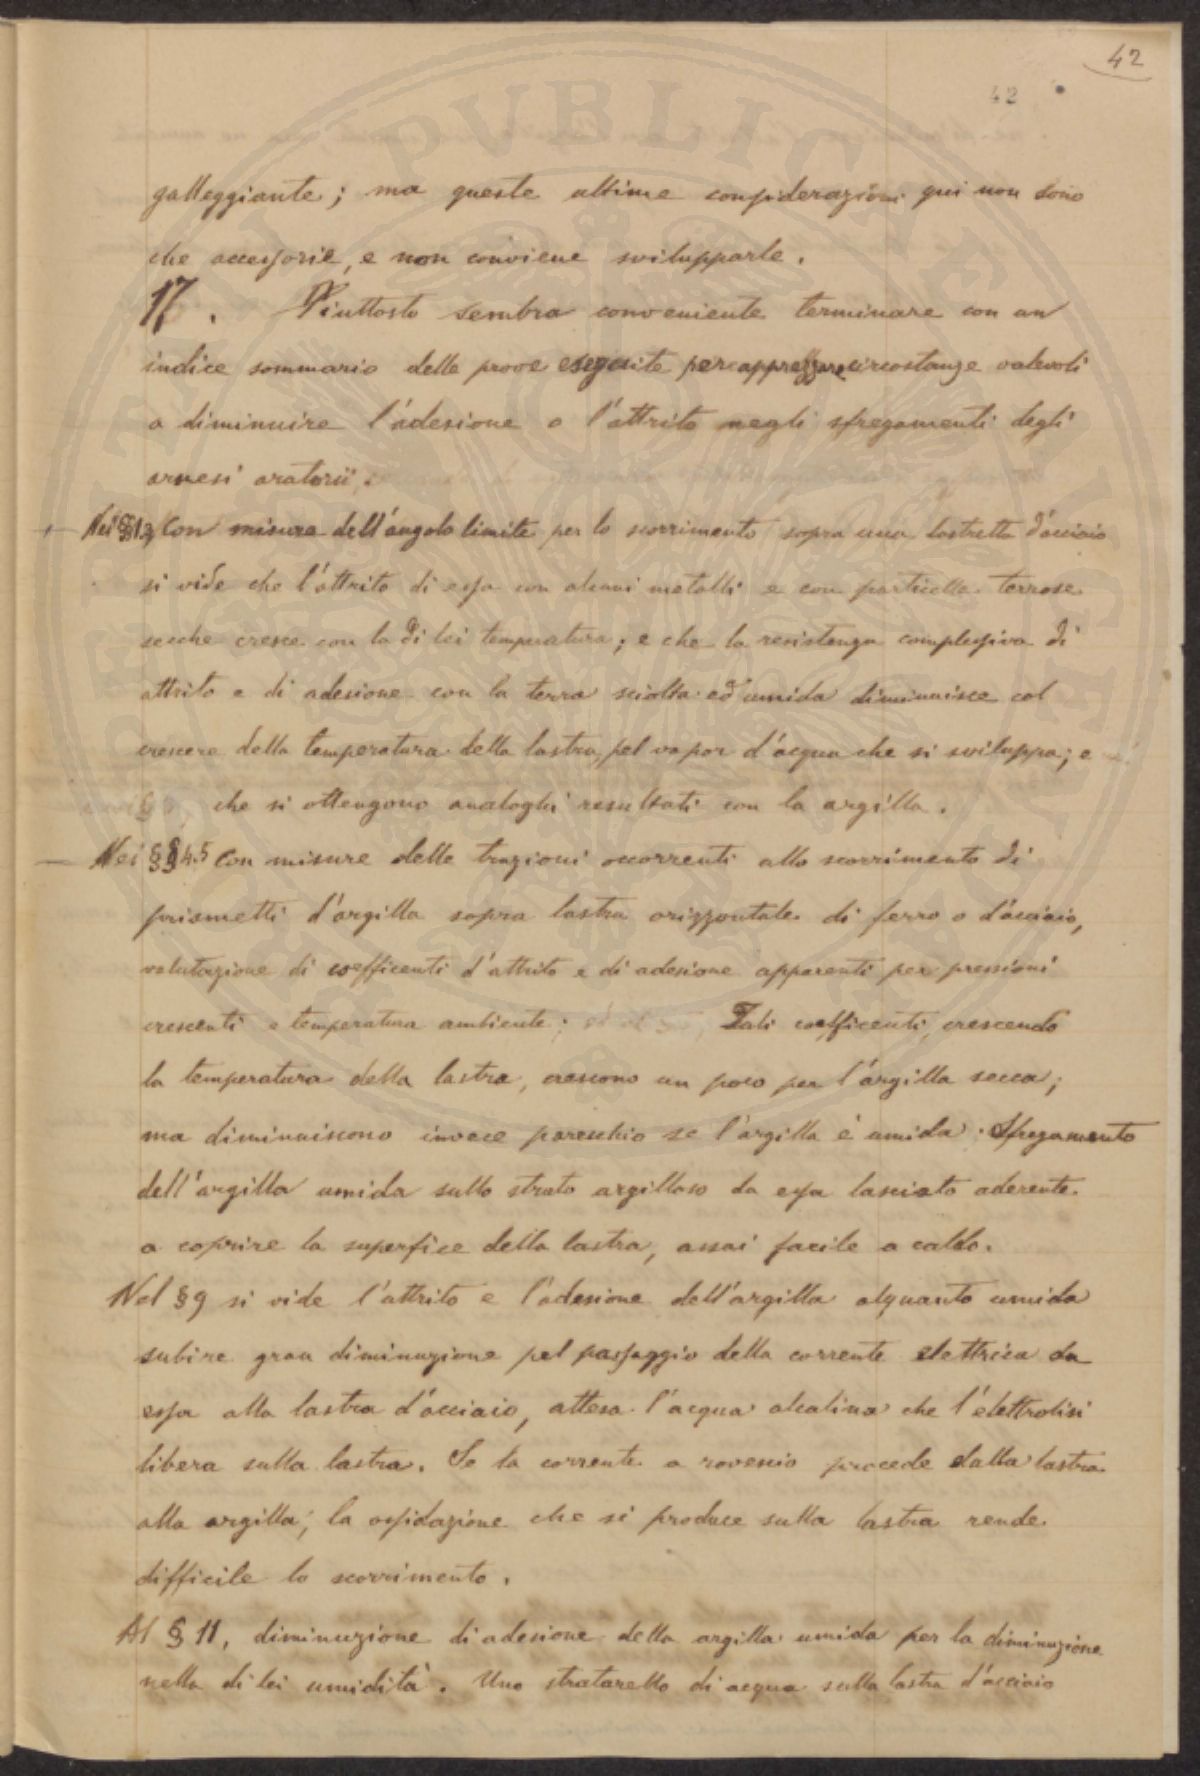 42
42
galleggiante; ma queste ultime considerazioni qui non sono
che accessorie, e non conviene svilupparle.
17. Piuttosto sembra conveniente terminare con un
indice sommario delle prove eseguite per apprezzare circostanze valevoli
a diminuire l'adesione o l'attrito negli sfregamenti degli
arnesi aratorii.
Nei §§ 2,3 Con misure dell'angolo limite per lo scorrimento sopra una lastretta d'acciaio
si vide che l'attrito di essa con alcuni metalli e con particelle terrose
secche cresce con la di lei temperatura; e che la resistenza complessiva di
attrito e di adesione con la terra sciolta ed umida diminuisce col
crescere della temperatura della lastra, pel vapor d'acqua che si sviluppa; e
che si ottengono analoghi resultati con la argilla.
Nei §§ 4.5 Con misure delle trazioni occorrenti allo scorrimento di
prismetti d'argilla sopra lastra orizzontale di ferro o d'acciaio,
valutazione di coefficenti d'attrito e di adesione apparenti per pressioni
crescenti e temperatura ambiente; Tali coefficenti, crescendo
la temperatura della lastra, crescono un poco per l'argilla secca;
ma diminuiscono invece parecchio se l'argilla è umida. Sfregamento
dell'argilla umida sullo strato argilloso da essa lasciato aderente
a coprire la superfice della lastra, assai facile a caldo.
Nel § 9 si vide l'attrito e l'adesione dell'argilla alquanto umida
subire gran diminuzione pel passaggio della corrente elettrica da
essa alla lastra d'acciaio, attesa l'acqua alcalina che l'elettrolisi
libera sulla lastra. Se la corrente a rovescio procede dalla lastra
alla argilla, la ossidazione che si produce sulla lastra rende
difficile lo scorrimento.
Al § 11, diminuzione di adesione della argilla umida per la diminuzione
nella di lei umidità. Uno straterello di acqua sulla lastra d'acciaio